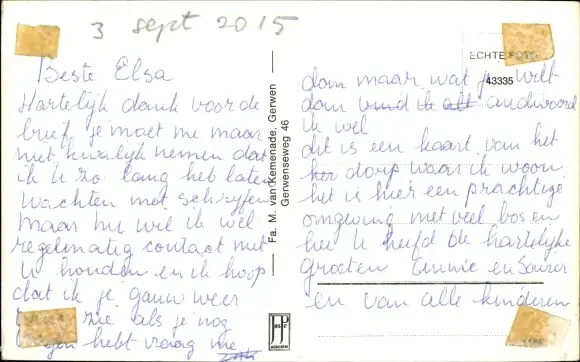 3 sept 2015
Beste Elsa
Hartelijk dank voor de
brief je moet me maar
niet kwalijk nemen dat
ik u zo lang heb laten
wachten met schrijfen
maar nu wil ik wel
regelmatig contact met
u houden en ik hoop
dat ik je gauw weer
zie als je nog
hebt vraag me
Fa. M. van Kemenade, Gerwen
Gerwenseweg 46
JosPé
ARNHEM
ECHTE FOTO
43335
dan maar wat je wilt
dan vind ik alt andwoord
ik wel
dit is een kaart van het
dorp waar ik woon
het is hier een prachtige
omgeving met veel bos en
hei u heefd de hartelijke
groeten Annie en
en van alle kinderen